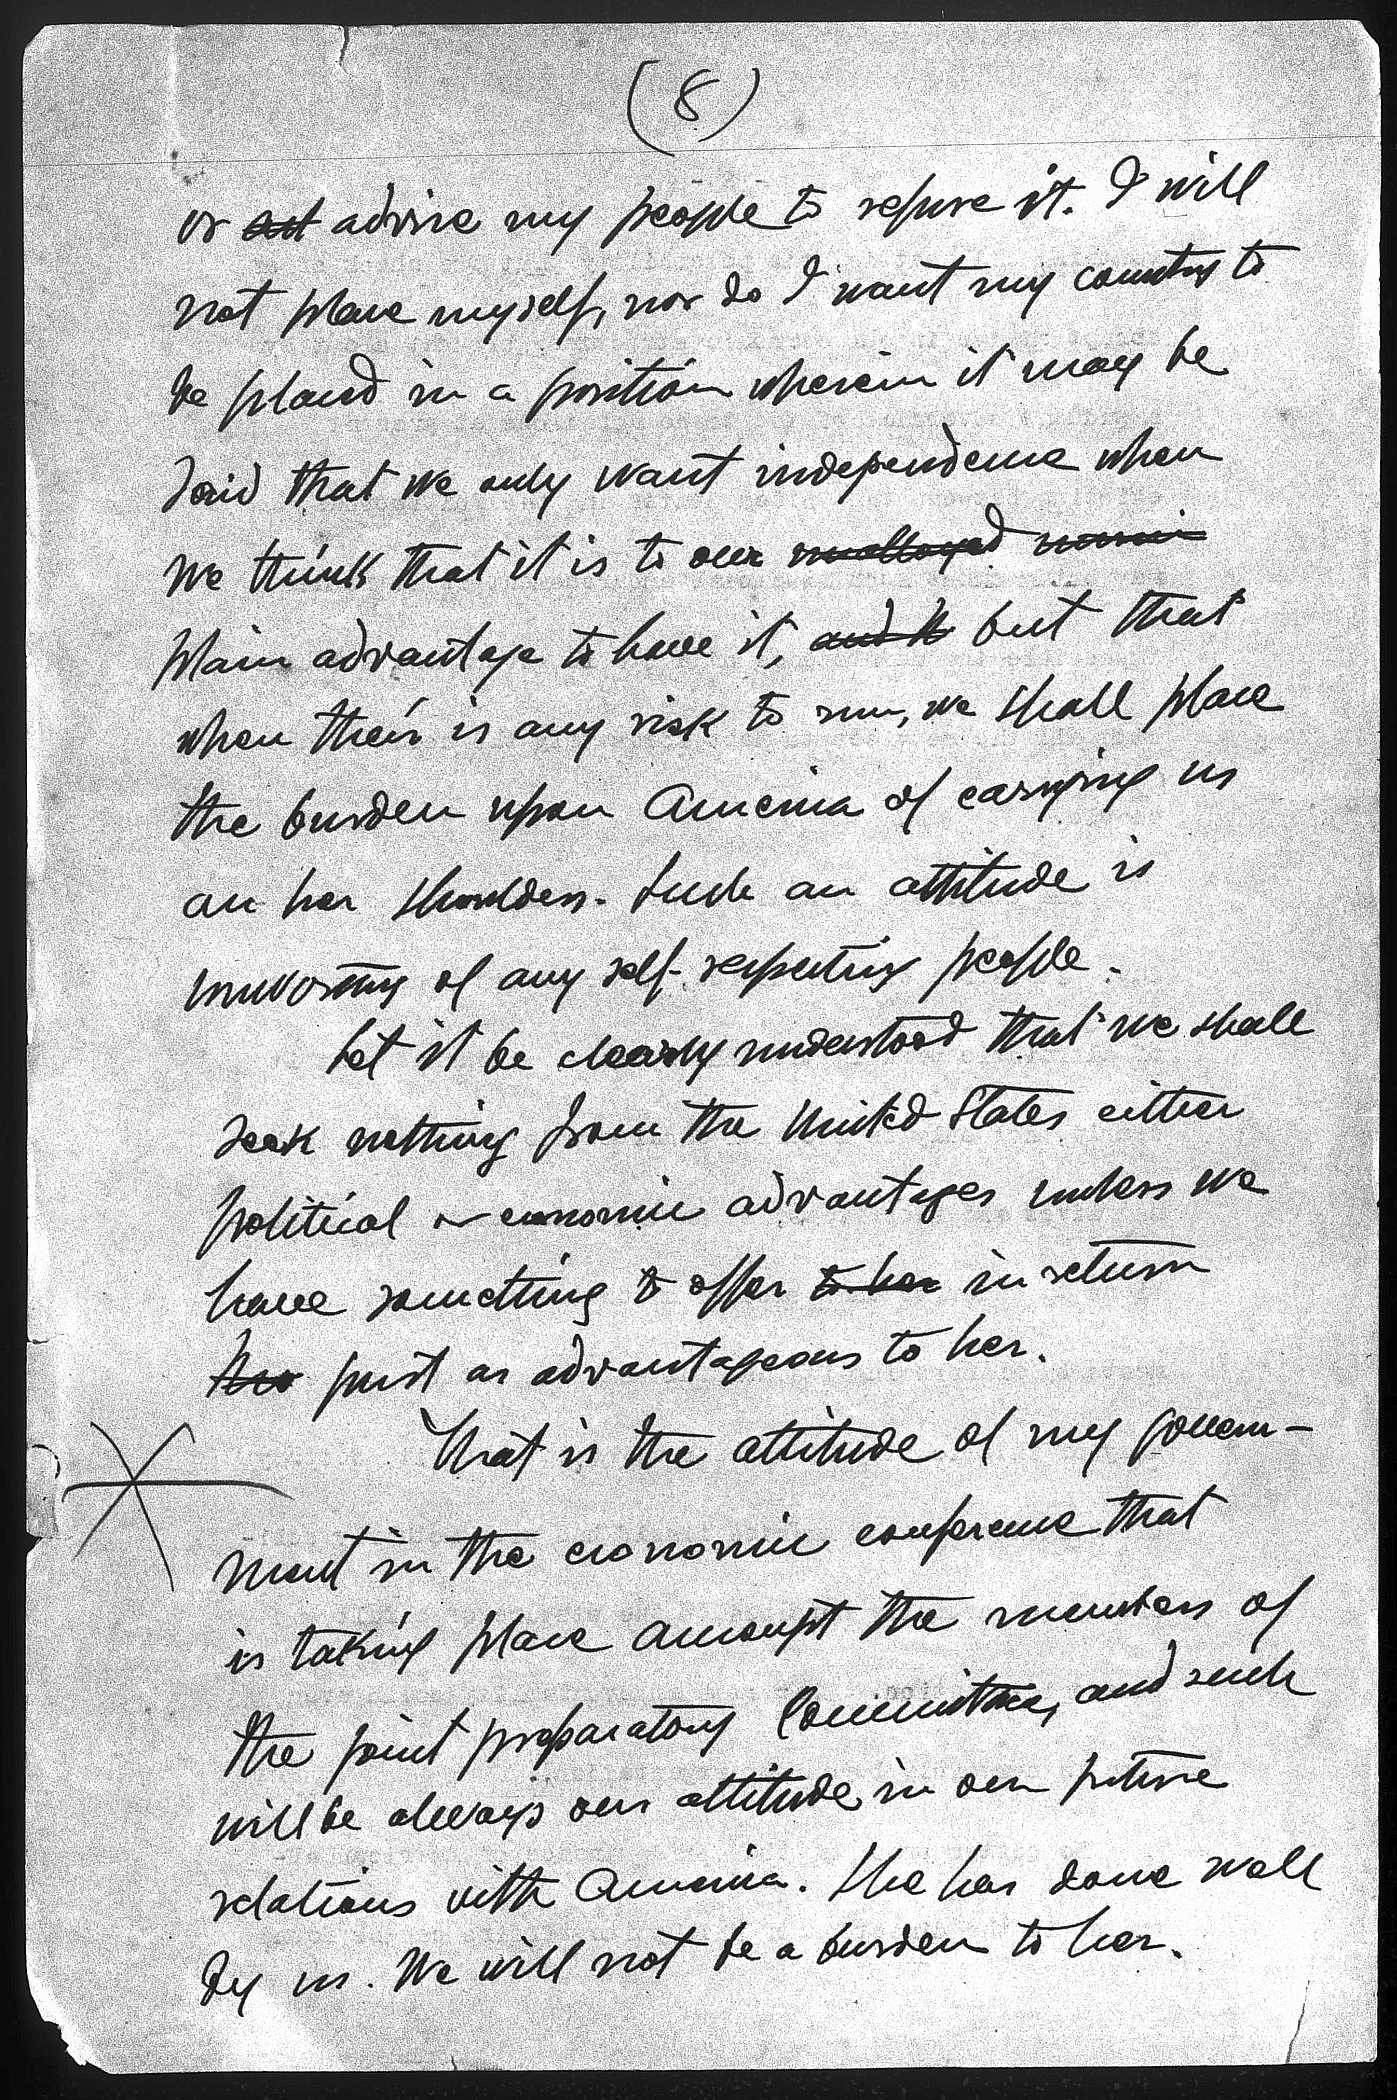 (8)
or advise my people to refuse it. I will
not place myself, nor do I want my country to
be placed in a position wherein it may be
said that we only want independence when
we think that it is to our
plain advantage to have it, and it but that
when their is any risk to run, we shall place
the burden upon America of carrying us
on her shoulders. Such an attitude is
unworthy of any self-respecting people.
Let it be clearly understood that we shall
seek nothing from the United States either
political or economic advantages unless we
have something to offer to her in return
just as advantageous to her.
That is the attitude of my govern-
ment in the economic conference that
is taking place amongst the members of
the joint preparatory Committee, and such
will be always our attitude in our future
relations with America. She has done well
by us. We will not be a burden to her.